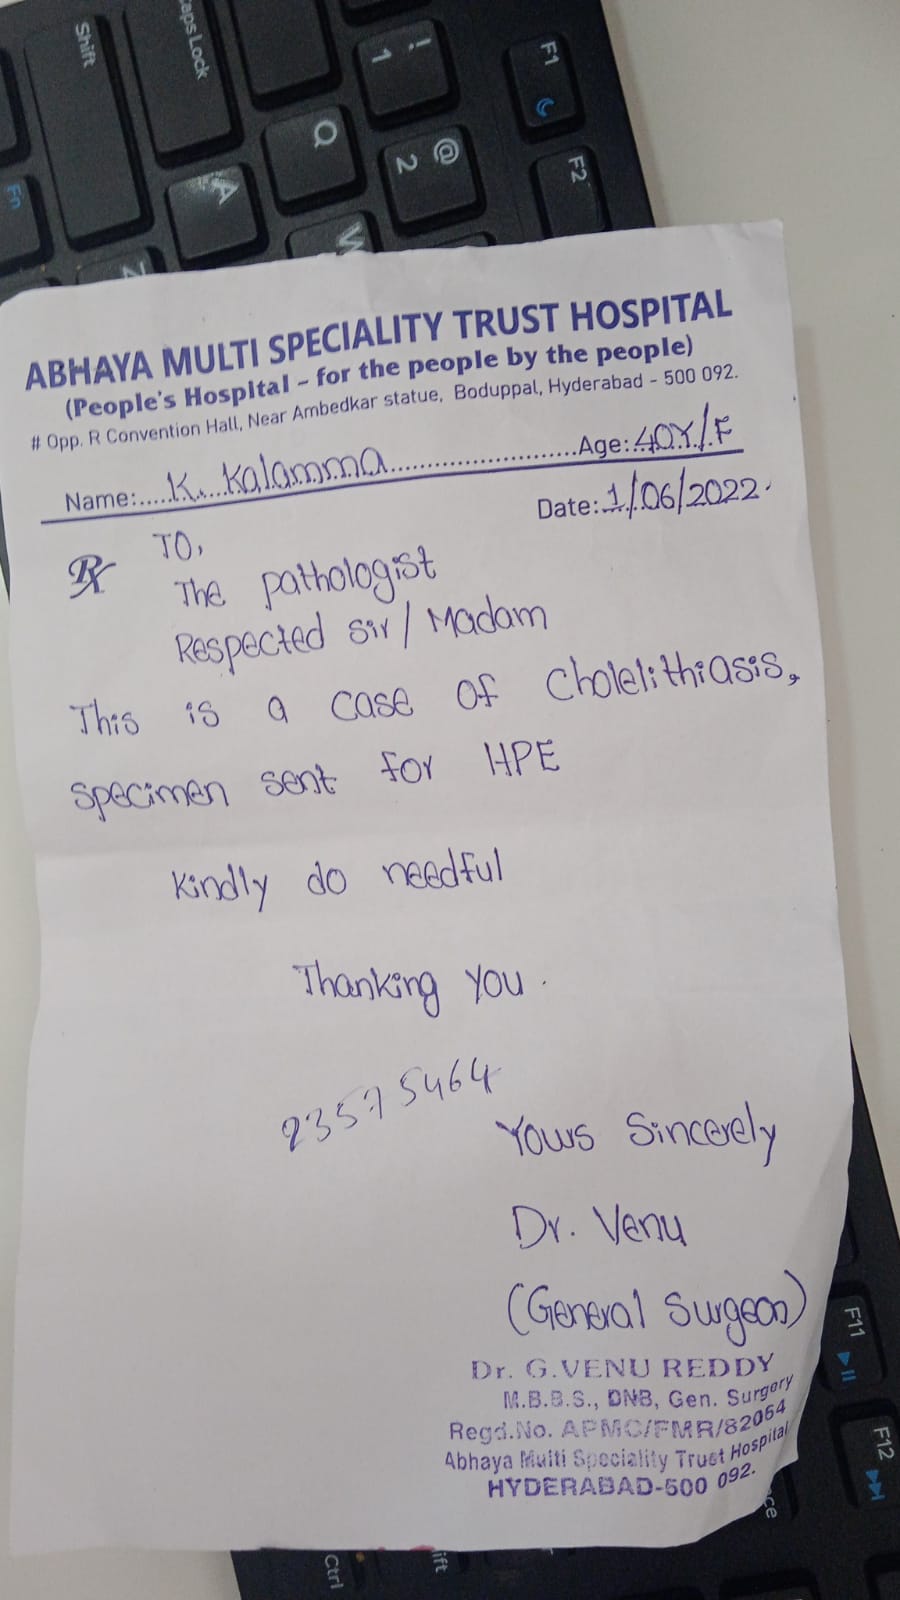 Shift
Caps Lock
! 1
F1
Q
@ 2
F2
Fn
A
W
Z
ABHAYA MULTI SPECIALITY TRUST HOSPITAL
(People's Hospital - for the people by the people)
# Opp. R Convention Hall, Near Ambedkar statue, Boduppal, Hyderabad - 500 092.
Name:.....K. Kalamma..........................Age:40Y/F
Date:1/06/2022.
Rx TO,
The pathologist
Respected Sir/Madam
This is a case of Cholelithiasis,
specimen sent for HPE
Kindly do needful
Thanking you.
23575464
Yours Sincerely
Dr. Venu
(General Surgeon)
Dr. G.VENU REDDY
M.B.B.S., DNB, Gen. Surgery
Regd.No. APMC/FMR/82064
Abhaya Multi Speciality Trust Hospital
HYDERABAD-500 092.
F11
F12
Ctrl